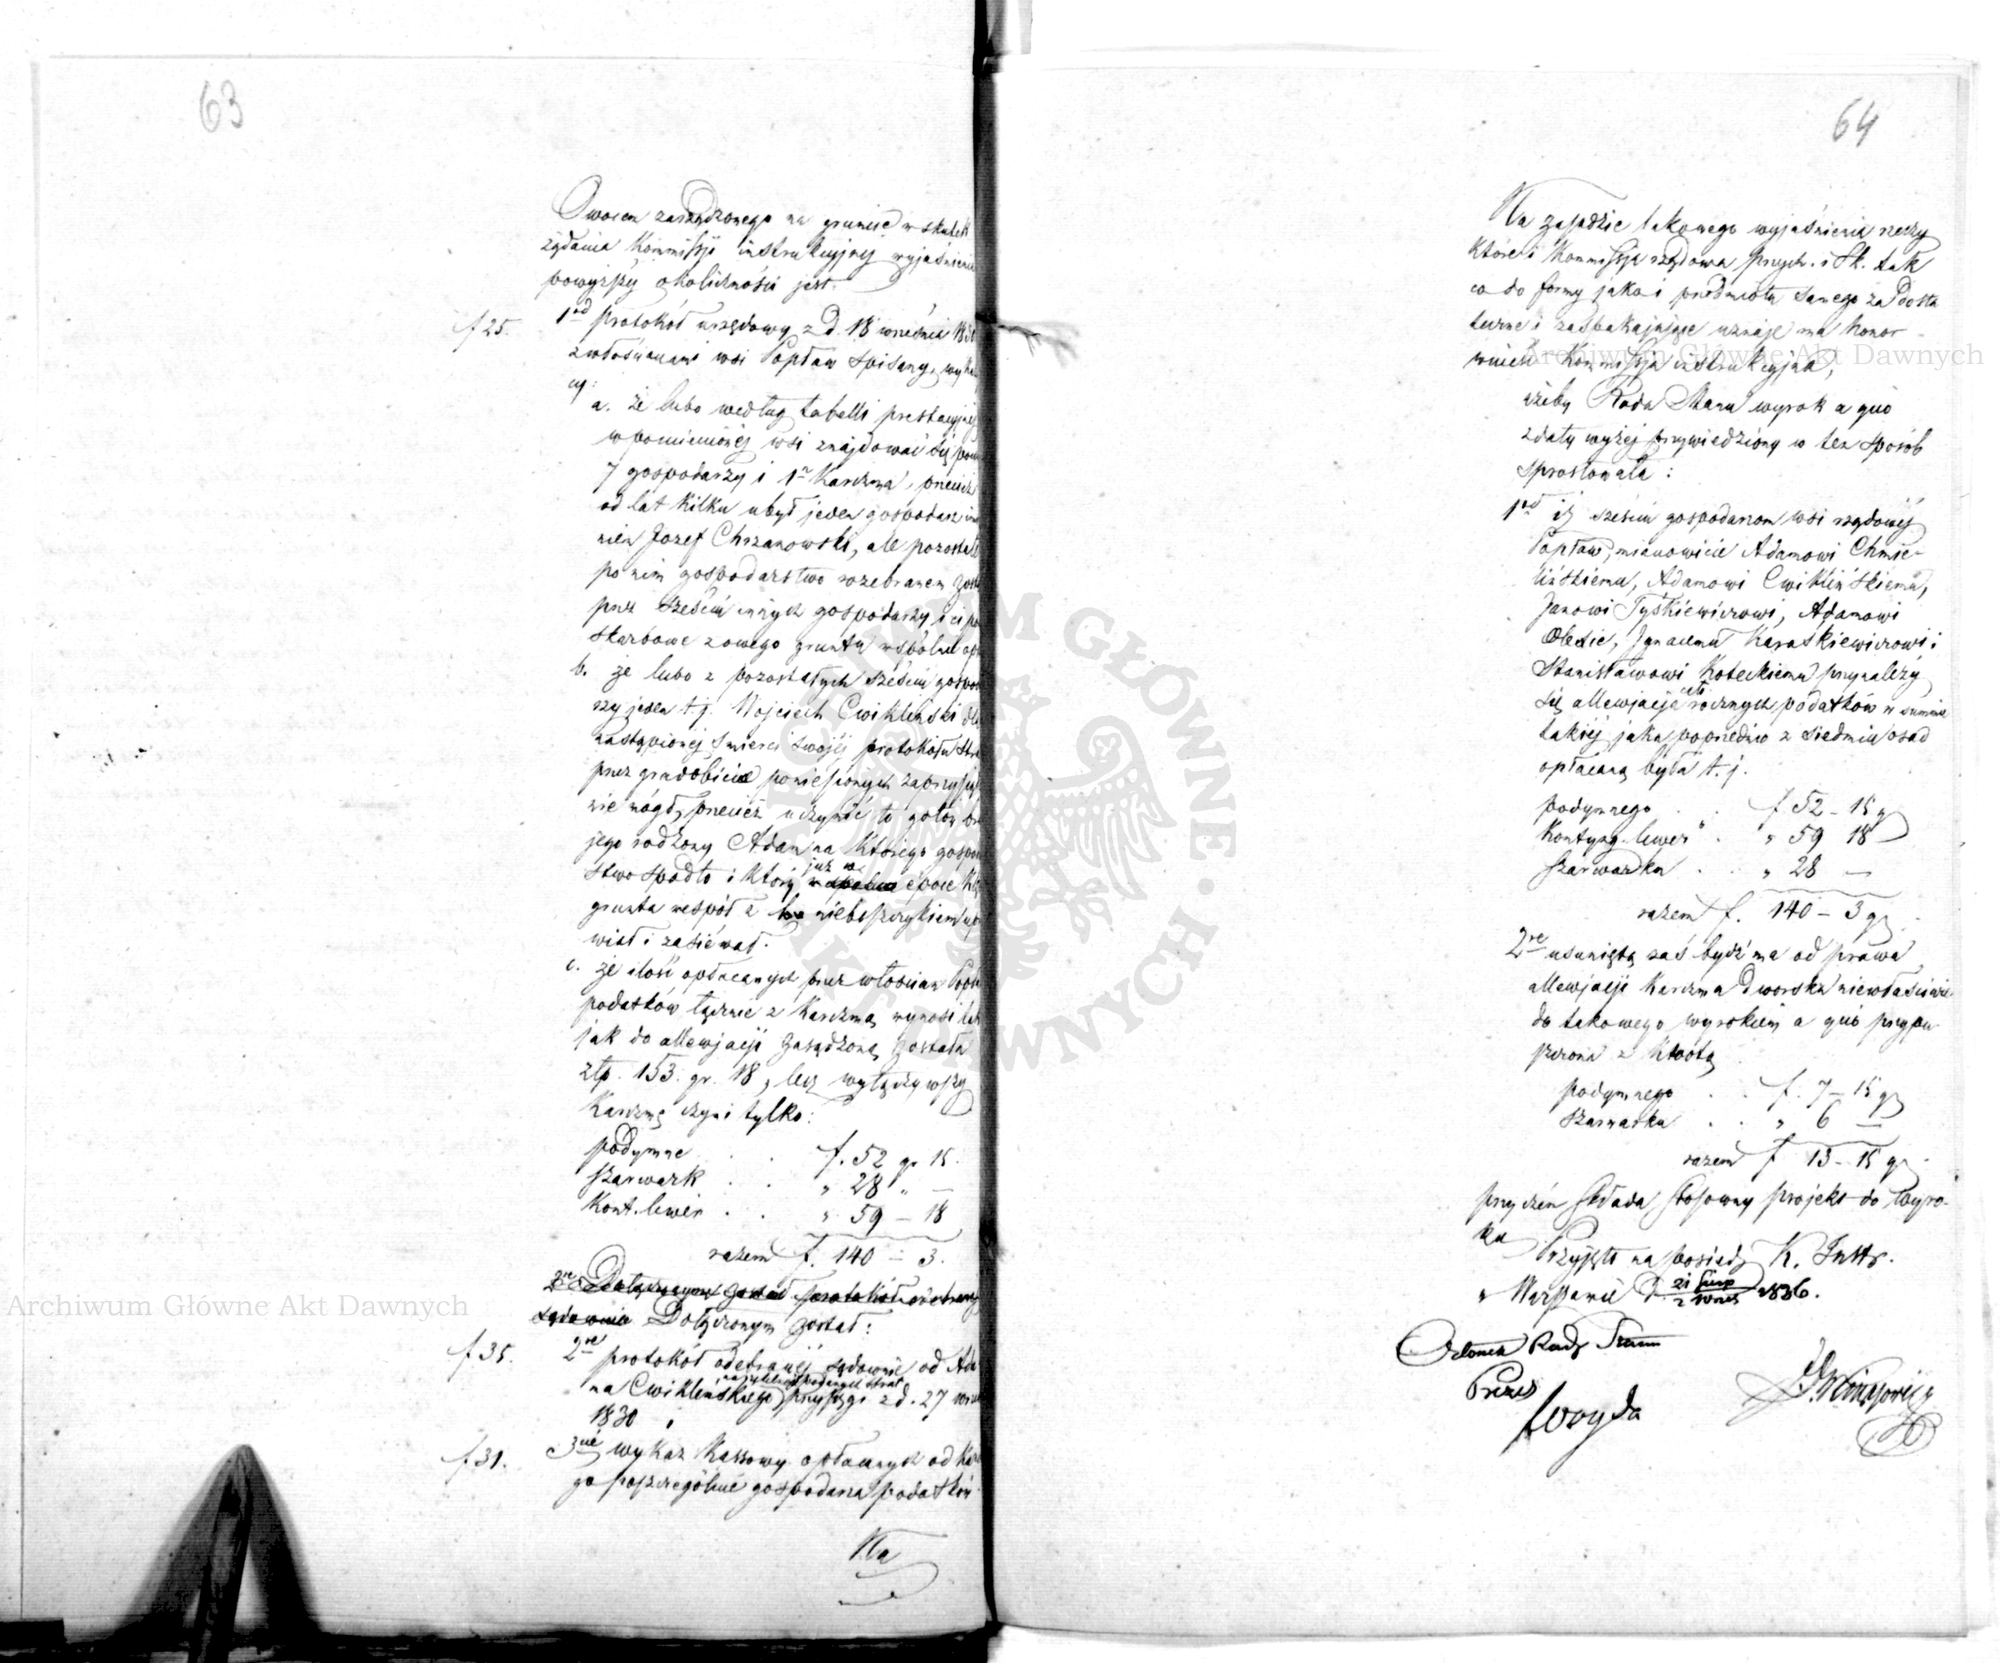 63
Owocem zarządzonego na gruncie w skutek
żądania Kommissji instrukcyjnej wyjaśnienia
powyższej okoliczności jest.
f 25. 1od protokół urzędowy z d. 18 września 1830
z włościanami wsi Popław spisany, wyka
cy:
a. że lubo według tabelli prestacyjnej
w pomienionej wsi znajdować się powi
7 gospodarzy i 1a Karczma, przecież
od lat kilku ubył jeden gospodarz imie
niem Jozef Chrzanowski, ale pozostałe
po nim gospodarstwo rozebranem zosta
przez sześciu innych gospodarzy, i ci po
skarbowe z owego gruntu wspólnie opł
b. że lubo z pozostałych sześciu gospod
rzy jeden t.j. Wojciech Cwikliński dla
nastąpionej śmierci swojej protokołu strat
przez gradobicie poniesionych zaprzysiądz
nie mógł, przecież uczynić to gotow brat
jego rodzony Adam na którego gospodar
stwo spadło i który już w epoce klęs
grunta wespół z nieboszczykiem upra
wiał i zasiéwał.
c. że ilość opłacanych przez włościan Popław
podatków łącznie z Karczmą wynosi tak
jak do allewjacji zasądzoną została
złp. 153. gr. 18, lecz wyłączywszy
Karczmę czyni tylko:
podymne . . f. 52 gr 15.
szarwark . . „ 28 „ —
Kont. liwer. . . „ 59 — 18
razem f. 140 — 3.
2re Dołączonym został protokół odebranej
sądownie Dołączonym został:
f 35. 2re protokół odebranej sądownie od Ada
na wykonane podanych strat
ma Cwiklińskiego przysięgi z d. 27 wrześ
1830
f 31. 3cie wykaz Kassowy opłacanych od Każde
go poszczególnie gospodarza podatków
Na
64
Na zasadzie takowego wyjaśnienia rzeczy
które i Kommissja rządowa Przych. i Sk. tak
co do formy jako i przedmiotu samego za dosta
teczne i zaspakajające uznaje ma honor
wnieść Kommissja instrukcyjna,
ażeby Rada Stanu wyrok a quo
z daty wyżej przywiedzionej w ten sposób
sprostowała:
1od iż sześciu gospodarzom wsi rządowej
Popław, mianowicie Adamowi Chmie-
lińskiemu, Adamowi Cwiklińskiemu,
Janowi Tyszkiewiczowi, Adamowi
Olesie, Ignacemu Karaśkiewiczowi i
Stanisławowi Koteckiemu przynależy
się allewjacja cało rocznych podatków w summie
takiej jaka poprzednio z siedmiu osad
opłacaną była t.j.
podymnego . . f 52 – 15 g
Kontyng. liwer. . „ 59 18
szarwarku . . „ 28 —
razem f. 140 – 3 g.
2re usuniętą zaś bydź ma od prawa
allewjacji Karczma Dworska niewłaściwie
do takowego wyrokiem a quo przypu
szczona z Kwotą
podymnego . . f. 7 – 15 g
szarwarku . . „ 6 —
razem f 13 – 15 g.
przyczem składa stosowny projekt do wyro-
ku
Przyjęto na posiedz. K. Instr.
w Warszawie d. 21 sierp / 2 wrześ 1836.
Członek Rady Stanu
Prezes
Woyda